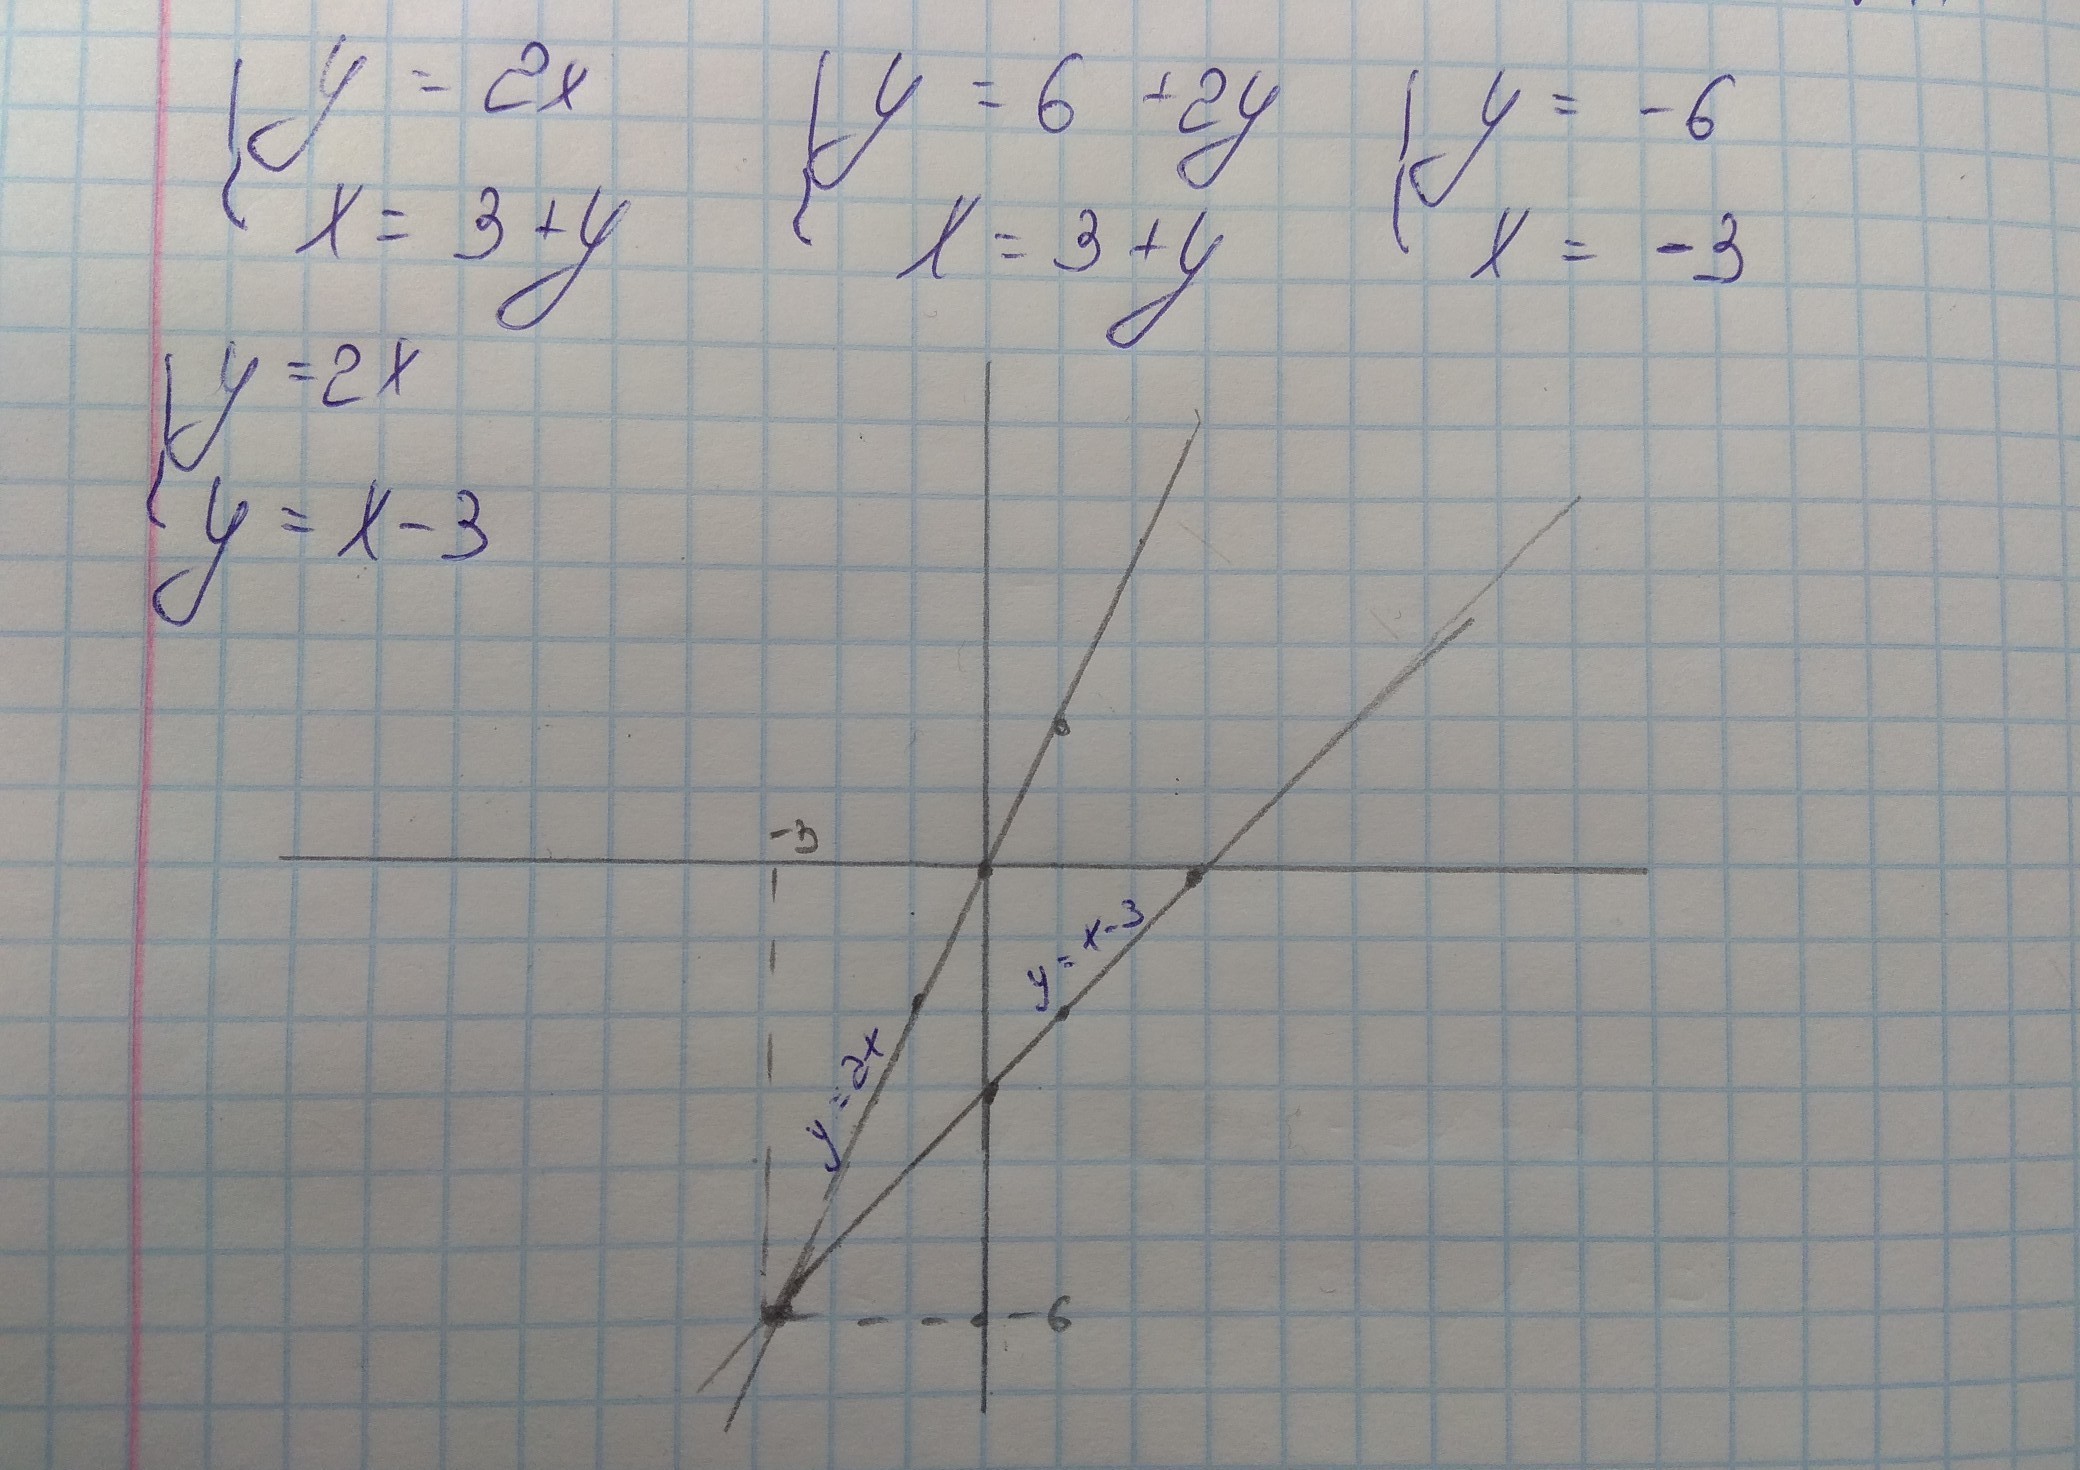 y = 2x
x = 3 + y
y = 6 + 2y
x = 3 + y
y = -6
x = -3
y = 2x
y = x - 3
-3
y = x - 3
y = 2x
-6